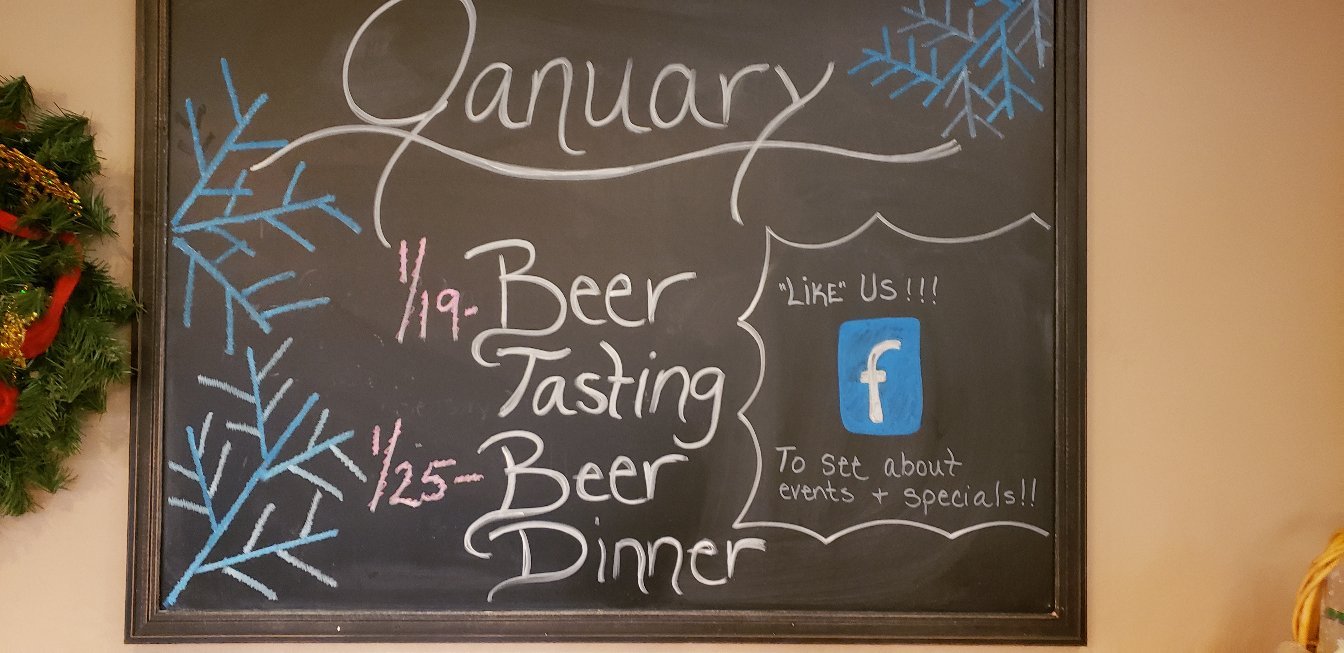 January
1/19- Beer
Tasting
1/25- Beer
Dinner
"LIKE" US!!!
f
To see about
events + specials!!